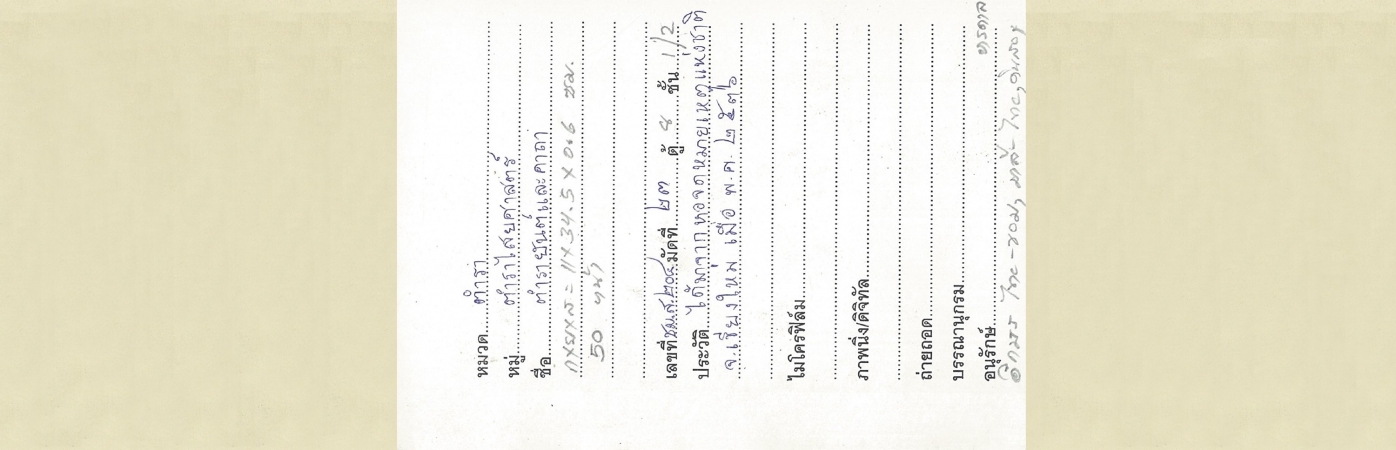 หมวด ตำรา
หมู่ ตำราไสยศาสตร์
ชื่อ ตำรายันต์และคาถา
กxยxส = 11x34.5x0.6 ซม.
50 หน้า
เลขที่ ชม.ส.๒๐๔ มัดที่ ๒๓ ตู้ ๔ ชั้น 1/2
ประวัติ ได้มาจากหอจดหมายเหตุแห่งชาติ
จ.เชียงใหม่ เมื่อ พ.ศ. ๒๕๓๖
ไมโครฟิล์ม
ภาพนิ่ง/ดิจิทัล
ถ่ายถอด
บรรณานุกรม
หรดาล
อนุรักษ์
อักษร ไทย-ขอม, ภาษา ไทย, เส้นหมึก